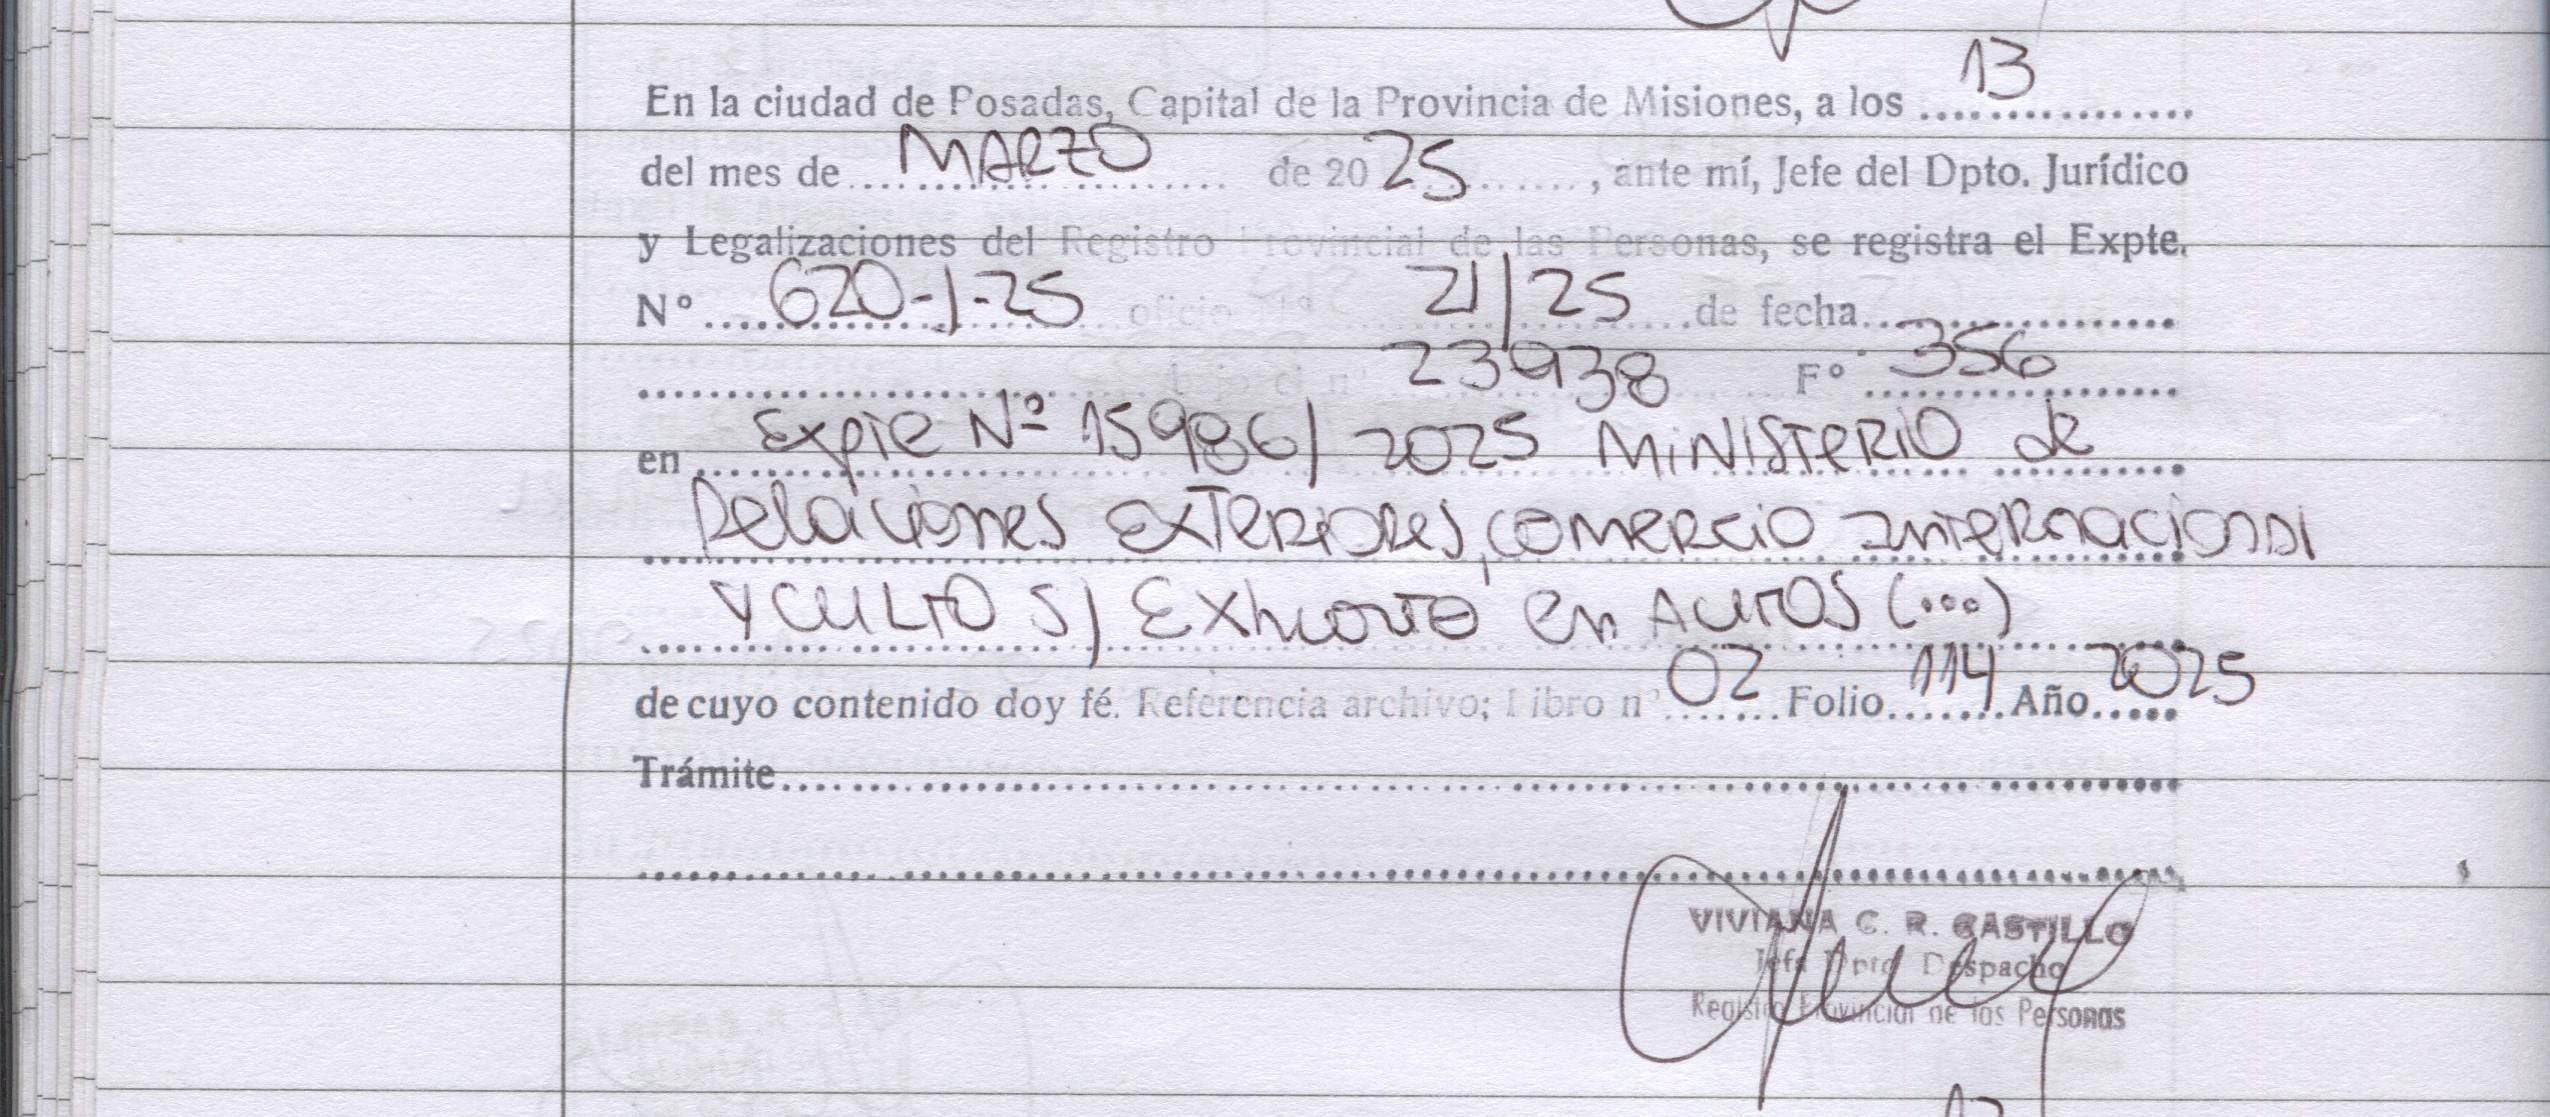 13
En la ciudad de Posadas, Capital de la Provincia de Misiones, a los ................
del mes de ....MARZO.... de 2025........, ante mí, Jefe del Dpto. Jurídico
y Legalizaciones del Registro Provincial de las Personas, se registra el Expte.
Nº....620-J-25.... oficio nº 21/25 ....de fecha................
................ n° 23938 Fº 356
en Expte Nº 15986/2025 MINISTERIO de
Relaciones EXTERIORES, COMERCIO INTERNACIONAl
Y CULTO S/ EXhorto en AUTOS (...)
de cuyo contenido doy fé. Referencia archivo; Libro nº 02 Folio 114 Año 2025
Trámite................
................
VIVIANA C. R. CASTILLO
Jefa Dpto Despacho
Registro Provincial de las Personas